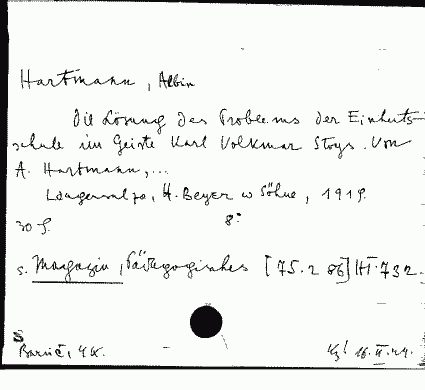 Hartmann, Albin
Die Lösung des Problems der Einheits-
schule im Geiste Karl Volkmar Stoys. Von
A. Hartmann,...
Langensalza, H. Beyer u Söhne, 1919.
30 S. 8°
s. Magazin, Pädagogisches [75.286] HI.732.